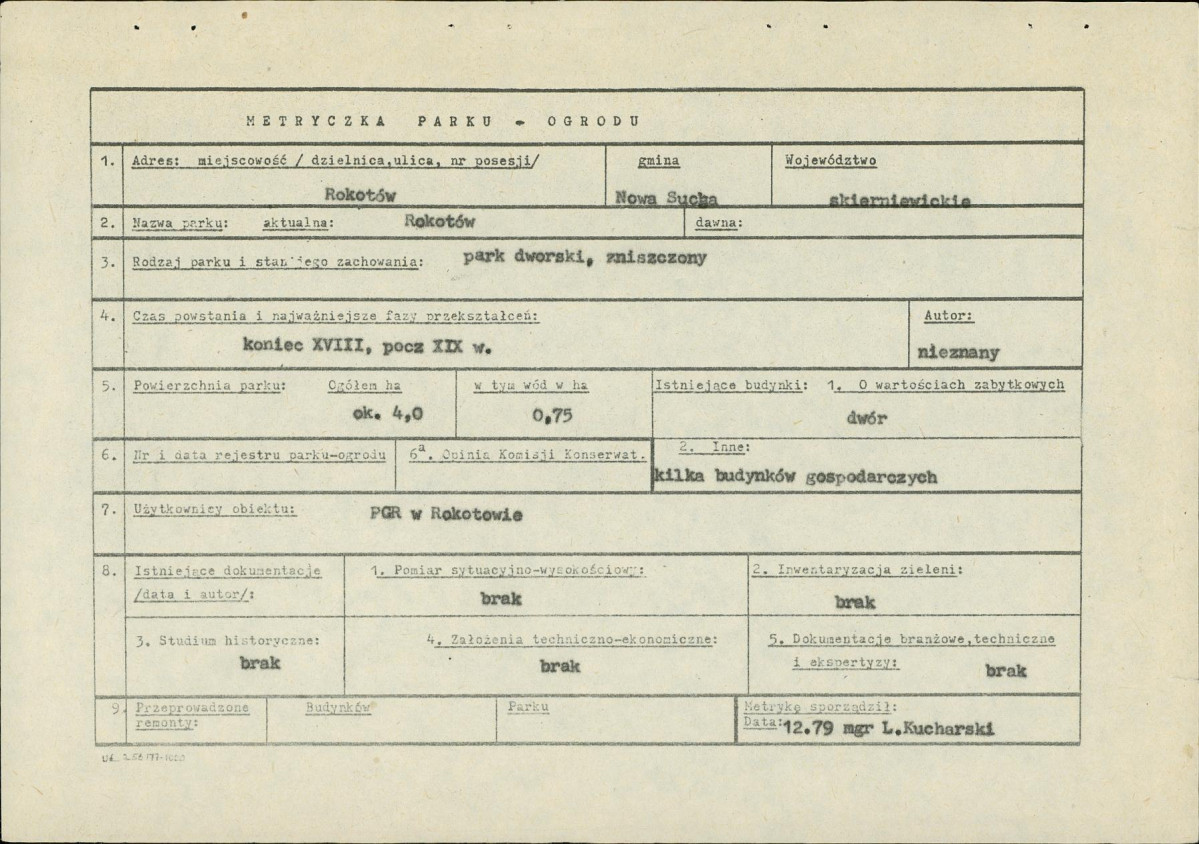 METRYCZKA PARKU - OGRODU
1. Adres: miejscowość / dzielnica,ulica, nr posesji/ gmina Województwo
Rokotów Nowa Sucha skierniewickie
2. Nazwa parku: aktualna: Rokotów dawna:
3. Rodzaj parku i stan jego zachowania: park dworski, zniszczony
4. Czas powstania i najważniejsze fazy przekształceń: Autor:
koniec XVIII, pocz XIX w. nieznany
5. Powierzchnia parku: Ogółem ha w tym wód w ha Istniejące budynki: 1. O wartościach zabytkowych
ok. 4,0 0,75 dwór
6. Nr i data rejestru parku-ogrodu 6a. Opinia Komisji Konserwat. 2. Inne:
kilka budynków gospodarczych
7. Użytkownicy obiektu: PGR w Rokotowie
8. Istniejące dokumentacje 1. Pomiar sytuacyjno-wysokościowy: 2. Inwentaryzacja zieleni:
/data i autor/: brak brak
3. Studium historyczne: 4. Założenia techniczno-ekonomiczne: 5. Dokumentacje branżowe,techniczne
brak brak i ekspertyzy: brak
9. Przeprowadzone Budynków Parku Metrykę sporządził:
remonty: Data:12.79 mgr L.Kucharski